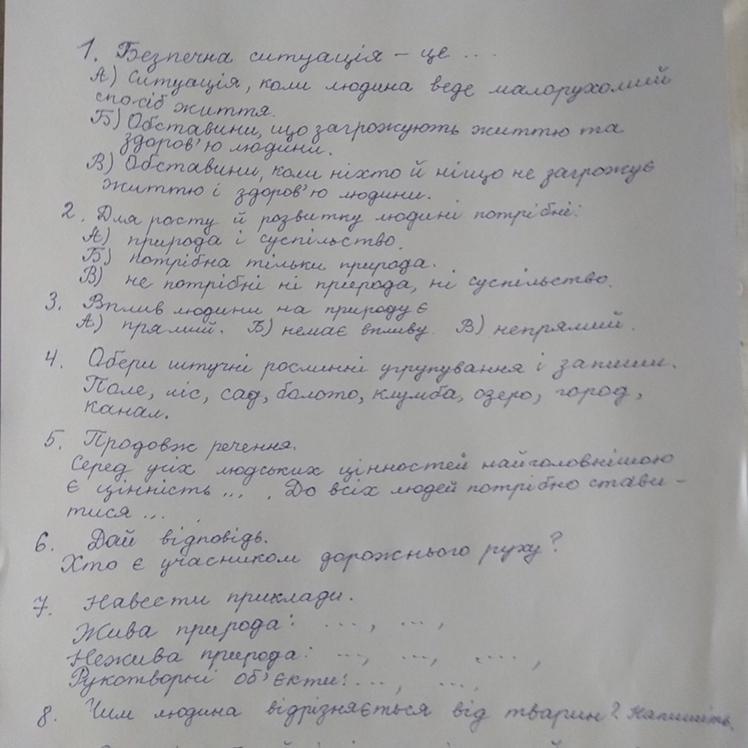 1. Безпечна ситуація – це ...
А) Ситуація, коли людина веде малорухомий
спосіб життя.
Б) Обставини, що загрожують життю та
здоров'ю людини.
В) Обставини, коли ніхто й ніщо не загрожує
життю і здоров'ю людини.
2. Для росту й розвитку людині потрібні:
А) природа і суспільство.
Б) потрібна тільки природа.
В) не потрібні ні природа, ні суспільство.
3. Вплив людини на природу є
А) прямий. Б) немає впливу. В) непрямий.
4. Обери штучні рослинні угрупування і запиши.
Поле, ліс, сад, болото, клумба, озеро, город,
канал.
5. Продовж речення.
Серед усіх людських цінностей найголовнішою
є цінність ... . До всіх людей потрібно стави-
тися ...
6. Дай відповідь.
Хто є учасником дорожнього руху?
7. Навести приклади.
Жива природа: ..., ...,
Нежива природа: ..., ..., ...,
Рукотворні об'єкти: ..., ...,
8. Чим людина відрізняється від тварин? Напишіть.